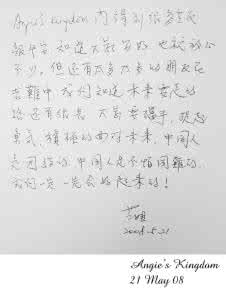 Angie's Kingdom 内得到很多
知道大家
不少,但还有太多太多的朋友在
苦难中 我们知道未来要走的
路还有很长 大家要携手,提起
勇气,积极的面对未来,中国人
是团结的,中国人是不怕困难的,
我们一定一定会好起来的!
2008.5.21
Angie's Kingdom
21 May 08